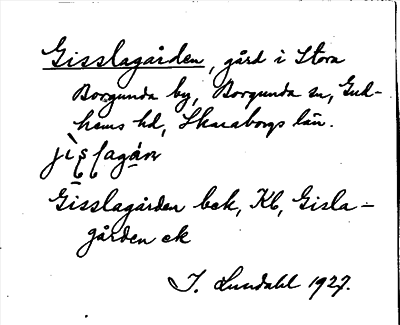 Gisslagården, gård i Stora
Borgunda by, Borgunda sn, Gud-
hems hd, Skaraborgs län.
Gisslagården bek, Kb, Gisla-
gården ek
I. Lundahl 1927.